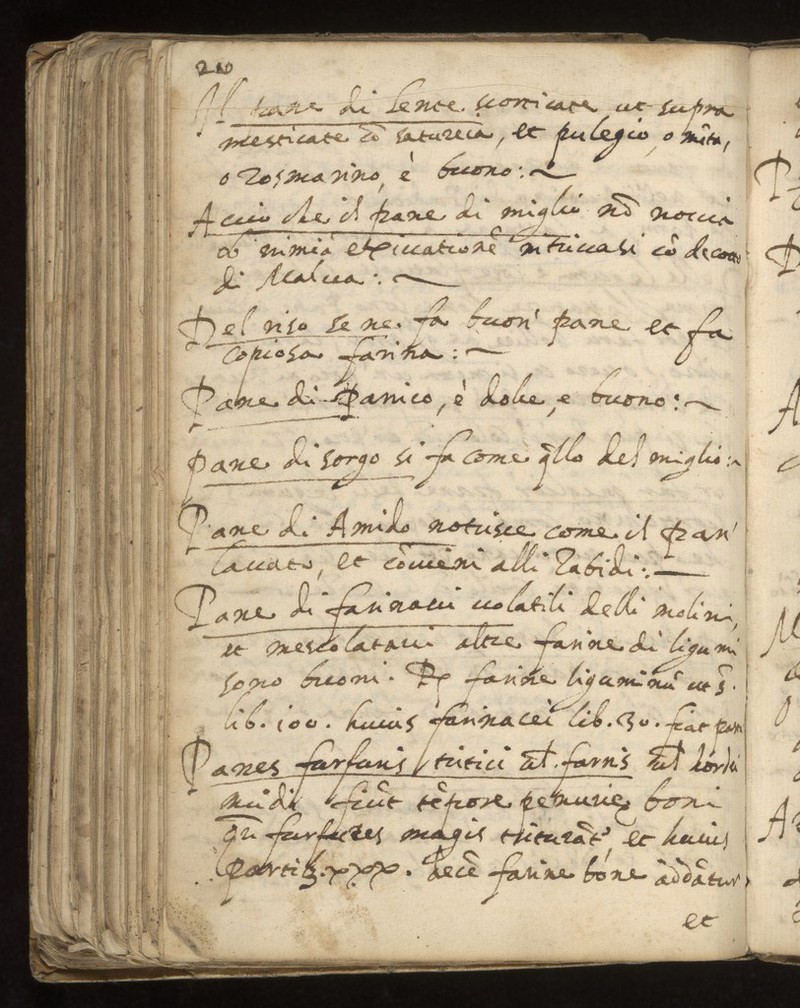 210
Il pane di lente scorticate ut supra
mesticate cõ satureia, et pulegio, o mẽta,
o Rosmarino, è buono:~
Acciò che il pane di miglio nõ noccia
ob nimia exiccationẽ intriccasi cõ decotto
di Malua:~
Del riso se ne fa buon' pane et fa
copiosa farina:~
Pane di Panico, è dolce, e buono:~
Pane di sorgo si fa come q̃llo del miglio:~
Pane di Amido notrisce come il pan'
lauato, et cõuieni alli Rabidi:~
Pane di farinacci uolatili delli molini,
et mescolataui altre farine di ligumi
sono buoni. Rx farine liguminũ ut s̃.
lib. 100. huius farinacei lib. 30. fiat panis
Panes furfuris tritici ał farris uł hordei
mũdi fiũt tẽpore penurie boni
qñ furfures magis triturãt', et huius
partib. xxx. decẽ farine bone addãtur,
et